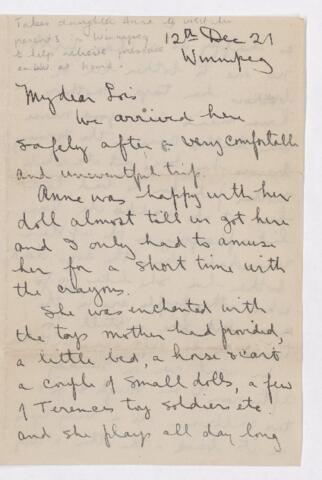 Takes daughter Anne to visit her
parents in Winnipeg
to help relieve pressure
at home.
12th Dec 21
Winnipeg
My dear Lois
We arrived here
safely after a very comfortable
and uneventful trip.
Anne was happy with her
doll almost till we got here
and I only had to amuse
her for a short time with
the crayons.
She was enchanted with
the toys mother had provided,
a little bed, a horse & cart
a couple of small dolls, a few
of Terences toy soldiers etc.
and she plays all day long